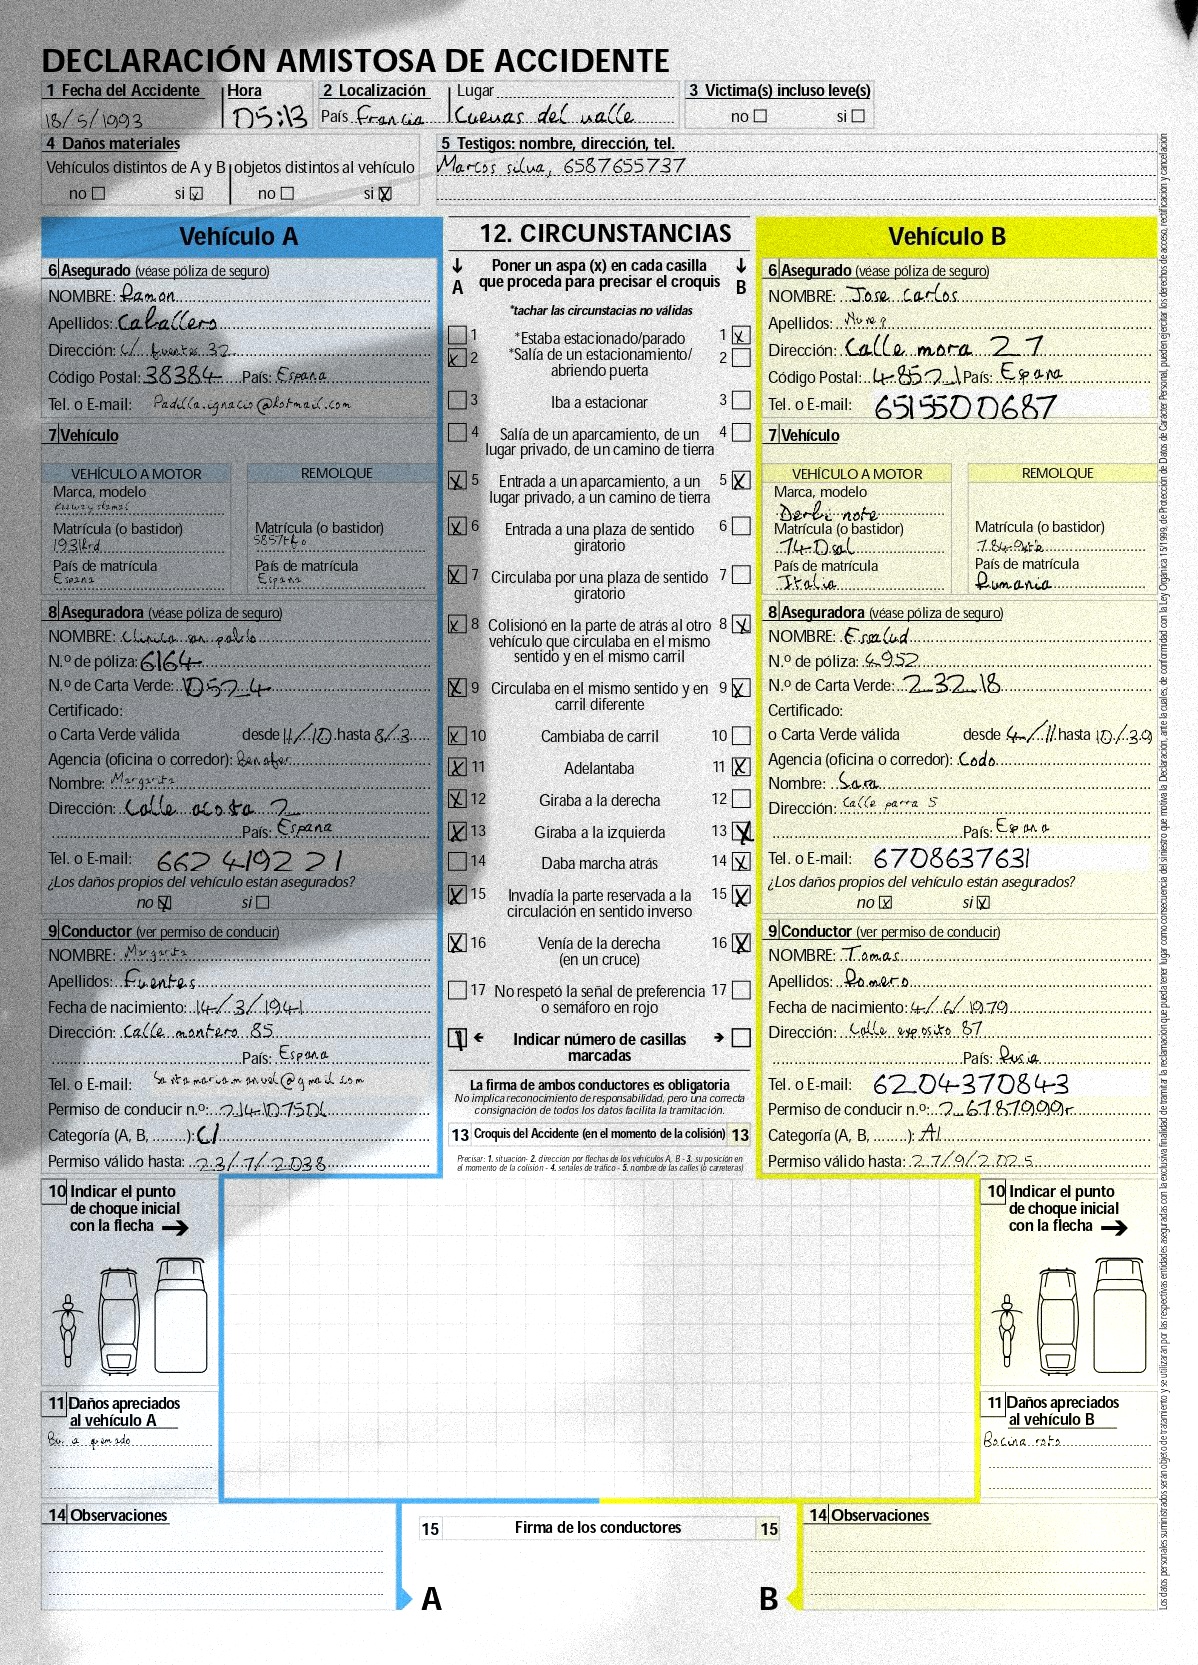 DECLARACIÓN AMISTOSA DE ACCIDENTE
1 Fecha del Accidente Hora 2 Localización Lugar 3 Victima(s) incluso leve(s)
18/5/1993 05:13 País Francia Cuevas del valle no si
4 Daños materiales 5 Testigos: nombre, dirección, tel.
Vehículos distintos de A y B objetos distintos al vehículo Marcos silva, 6587655737
no si X no si X
Vehículo A
6 Asegurado (véase póliza de seguro)
NOMBRE: Ramon
Apellidos: Caballero
Dirección: C/ fuentes 32
Código Postal: 38384 País: Espana
Tel. o E-mail: Padilla.ignacio@hotmail.com
7 Vehículo
VEHÍCULO A MOTOR REMOLQUE
Marca, modelo
Matrícula (o bastidor) Matrícula (o bastidor)
País de matrícula País de matrícula
Espana Espana
8 Aseguradora (véase póliza de seguro)
NOMBRE: Clinica san pablo
N.º de póliza: 6164
N.º de Carta Verde: 10524
Certificado:
o Carta Verde válida desde 11/10 hasta 8/3
Agencia (oficina o corredor): Benafer
Nombre: Margarita
Dirección: Calle acosta 2
País: Espana
Tel. o E-mail: 662 419221
¿Los daños propios del vehículo están asegurados?
no X si
9 Conductor (ver permiso de conducir)
NOMBRE: Margarita
Apellidos: Fuentes
Fecha de nacimiento: 14/3/1941
Dirección: Calle montero 85
País: Espana
Tel. o E-mail: Santamariamanuel@gmail.com
Permiso de conducir n.º:
Categoría (A, B, ........): C1
Permiso válido hasta: 23/7/2038
12. CIRCUNSTANCIAS
A Poner un aspa (x) en cada casilla que proceda para precisar el croquis B
*tachar las circunstacias no válidas
1 *Estaba estacionado/parado 1 X
X 2 *Salía de un estacionamiento/ 2
abriendo puerta
3 Iba a estacionar 3
4 Salía de un aparcamiento, de un 4
lugar privado, de un camino de tierra
X 5 Entrada a un aparcamiento, a un 5 X
lugar privado, a un camino de tierra
X 6 Entrada a una plaza de sentido 6
giratorio
X 7 Circulaba por una plaza de sentido 7
giratorio
X 8 Colisionó en la parte de atrás al otro 8 X
vehículo que circulaba en el mismo
sentido y en el mismo carril
X 9 Circulaba en el mismo sentido y en 9 X
carril diferente
X 10 Cambiaba de carril 10
X 11 Adelantaba 11 X
X 12 Giraba a la derecha 12
X 13 Giraba a la izquierda 13 X
14 Daba marcha atrás 14 X
X 15 Invadía la parte reservada a la 15 X
circulación en sentido inverso
X 16 Venía de la derecha 16 X
(en un cruce)
17 No respetó la señal de preferencia 17
o semáforo en rojo
Indicar número de casillas
marcadas
La firma de ambos conductores es obligatoria
No implica reconocimiento de responsabilidad, pero una correcta
consignación de todos los datos facilita la tramitación.
13 Croquis del Accidente (en el momento de la colisión) 13
Precisar: 1. situación- 2. dirección por flechas de los vehículos A, B - 3. su posición en
el momento de la colisión - 4. señales de tráfico - 5. nombre de las calles (o carreteras)
Vehículo B
6 Asegurado (véase póliza de seguro)
NOMBRE: Jose Carlos
Apellidos:
Dirección: Calle mora 27
Código Postal: 48521 País: Espana
Tel. o E-mail: 6515500687
7 Vehículo
VEHÍCULO A MOTOR REMOLQUE
Marca, modelo
Derbi note
Matrícula (o bastidor) Matrícula (o bastidor)
País de matrícula País de matrícula
Italia Rumania
8 Aseguradora (véase póliza de seguro)
NOMBRE: Essalud
N.º de póliza: 4952
N.º de Carta Verde: 23218
Certificado:
o Carta Verde válida desde 4/11 hasta 10/39
Agencia (oficina o corredor): Codo
Nombre: Sara
Dirección: Calle parra 5
País: Espana
Tel. o E-mail: 6708637631
¿Los daños propios del vehículo están asegurados?
no X si X
9 Conductor (ver permiso de conducir)
NOMBRE: Tomas
Apellidos: Romero
Fecha de nacimiento: 4/6/1979
Dirección: Calle exposito 87
País: Rusia
Tel. o E-mail: 6204370843
Permiso de conducir n.º: 26787999r
Categoría (A, B, ........): A1
Permiso válido hasta: 27/9/2025
10 Indicar el punto
de choque inicial
con la flecha
11 Daños apreciados
al vehículo A
quemado
10 Indicar el punto
de choque inicial
con la flecha
11 Daños apreciados
al vehículo B
Bocina rota
14 Observaciones
15 Firma de los conductores 15
A B
14 Observaciones
Los datos personales suministrados serán objeto de tratamiento y se utilizarán por las respectivas entidades aseguradas con la exclusiva finalidad de tramitar la reclamación que pueda tener lugar como consecuencia del siniestro que motiva la Declaración, ante la cuales, de conformidad con la Ley Orgánica 15/1999, de Protección de Datos de Carácter Personal, pueden ejercitar los derechos de acceso, rectificación y cancelación